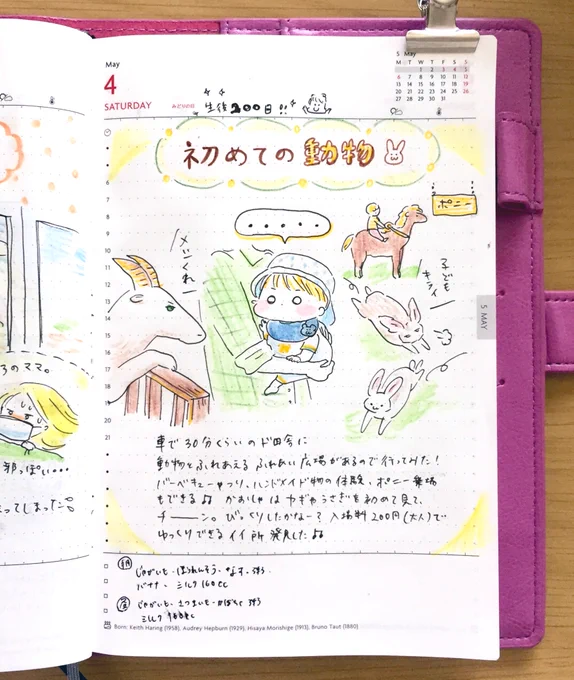 May
4
SATURDAY
みどりの日
生後200日!!
5 May
M T W T F S S
1 2 3 4 5
6 7 8 9 10 11 12
13 14 15 16 17 18 19
20 21 22 23 24 25 26
27 28 29 30 31
初めての動物
・・・・・
ポニー
メシくれ
子ども
キライ
6
7
8
9
10
11
12
13
14
15
16
17
18
19
20
21
5 MAY
ろのママ。
邪っぽい…
ってしまった
車で30分くらいのド田舎に
動物とふれあえる ふれあい広場があるので行ってみた!
バーベキューやつり、ハンドメイド物の体験、ポニー乗場
もできる♫ かおしゃは ヤギやうさぎを初めて見て、
チーーーン。びっくりしたかなー? 入場料200円(大人)で
ゆっくりできるイイ所 発見した♫
朝
じゃがいも・ほうれんそう・なす・
バナナ・ミルク160cc
じゃがいも・さつまいも・かぼちゃ
ミルク
Born: Keith Haring (1958), Audrey Hepburn (1929), Hisaya Morishige (1913), Bruno Taut (1880)